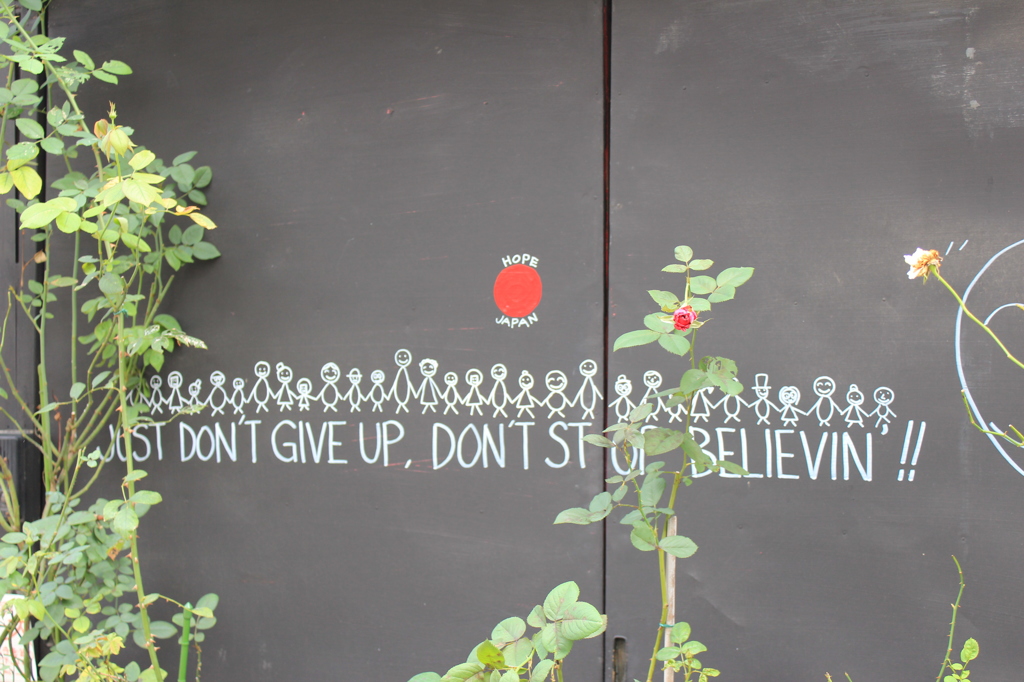 HOPE
JAPAN
JUST DON'T GIVE UP, DON'T STOP BELIEVIN'!!